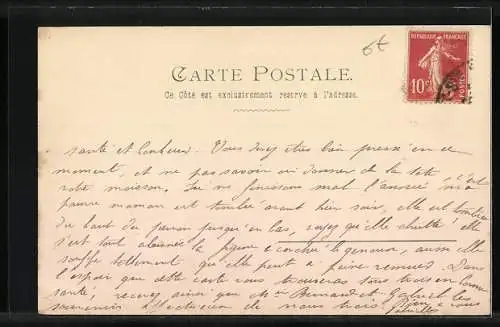 6t
REPUBLIQUE FRANÇAISE
10c
POSTES
CARTE POSTALE.
Ce Côté est exclusivement réservé à l'adresse.
santé et bonheur. Vous devez être bien pressé en ce
moment, et ne pas savoir où donner de la tête
votre maison. Ici ne finissons mal l'année
pauvre maman est tombée avant hier soir, elle est tombée
du haut du perron jusqu'en bas, voyez qu'elle chutte! elle
s'est tout la figure écorché le genoux, aussi elle
souffre tellement qu'elle peut à peine remuer. Dans
l'espoir que cette carte vous trouvera tous trois en bonne
santé, recevez ainsi que Mr Bernard et les
de nous trois